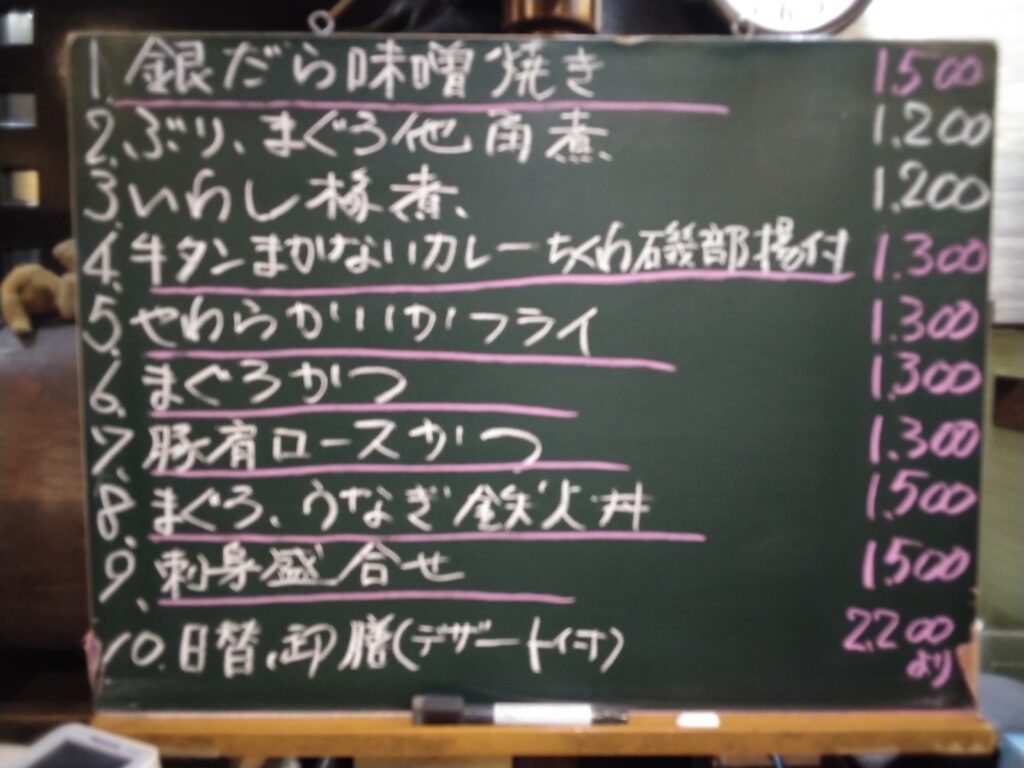 1. 銀だら味噌焼き 1.500
2. ぶり、まぐろ他角煮 1.200
3 いわし 煮 1.200
4. 牛タンまかないカレーちくわ磯部揚付 1.300
5. やわらかいかフライ 1.300
6. まぐろかつ 1.300
7. 豚肩ロースかつ 1.300
8. まぐろ、うなぎ鉄火丼 1.500
9、刺身盛合せ 1.500
10. 日替、御膳(デザート付) 2.200
より